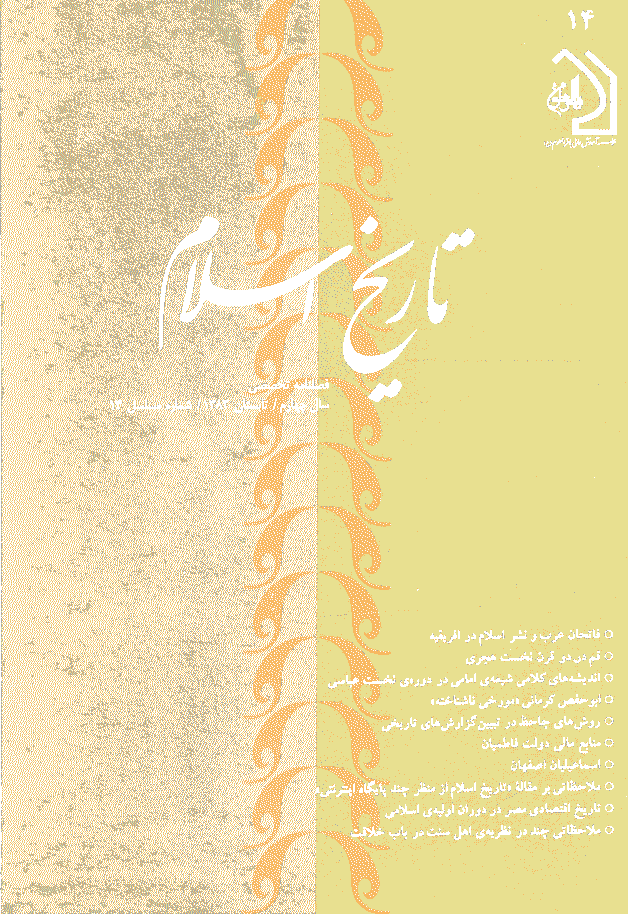 ۱۴
تاریخ اسلام
فصلنامه تخصصی
سال چهارم / تابستان ۱۳۸۲ / شماره مسلسل ۱۴
○ فاتحان عرب و نشر اسلام در افریقیه
○ قم در دو قرن نخست هجری
○ اندیشه‌های کلامی شیعه‌ی امامی در دوره‌ی نخست عباسی
○ ابوحفص کرمانی «مورخی ناشناخته»
○ روش‌های جاحظ در تبیین گزارش‌های تاریخی
○ منابع مالی دولت فاطمیان
○ اسماعیلیان اصفهان
○ ملاحظاتی بر مقاله «تاریخ اسلام از منظر چند پایگاه اینترنتی»
○ تاریخ اقتصادی مصر در دوران اولیه‌ی اسلامی
○ ملاحظاتی چند در نظریه‌ی اهل سنت در باب خلافت